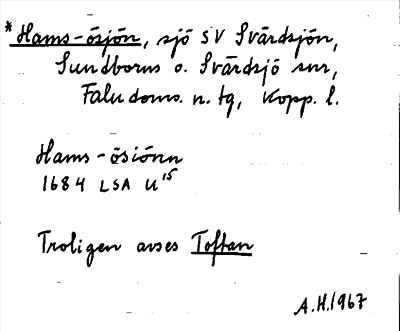 *Hams-ösjön, sjö SV Svärdsjön,
Sundborns o. Svärdsjö snr,
Falu doms. n. tg, Kopp. l.
Hams-ösiönn
1684 LSA U¹⁵
Troligen avses Toftan
A.H. 1967